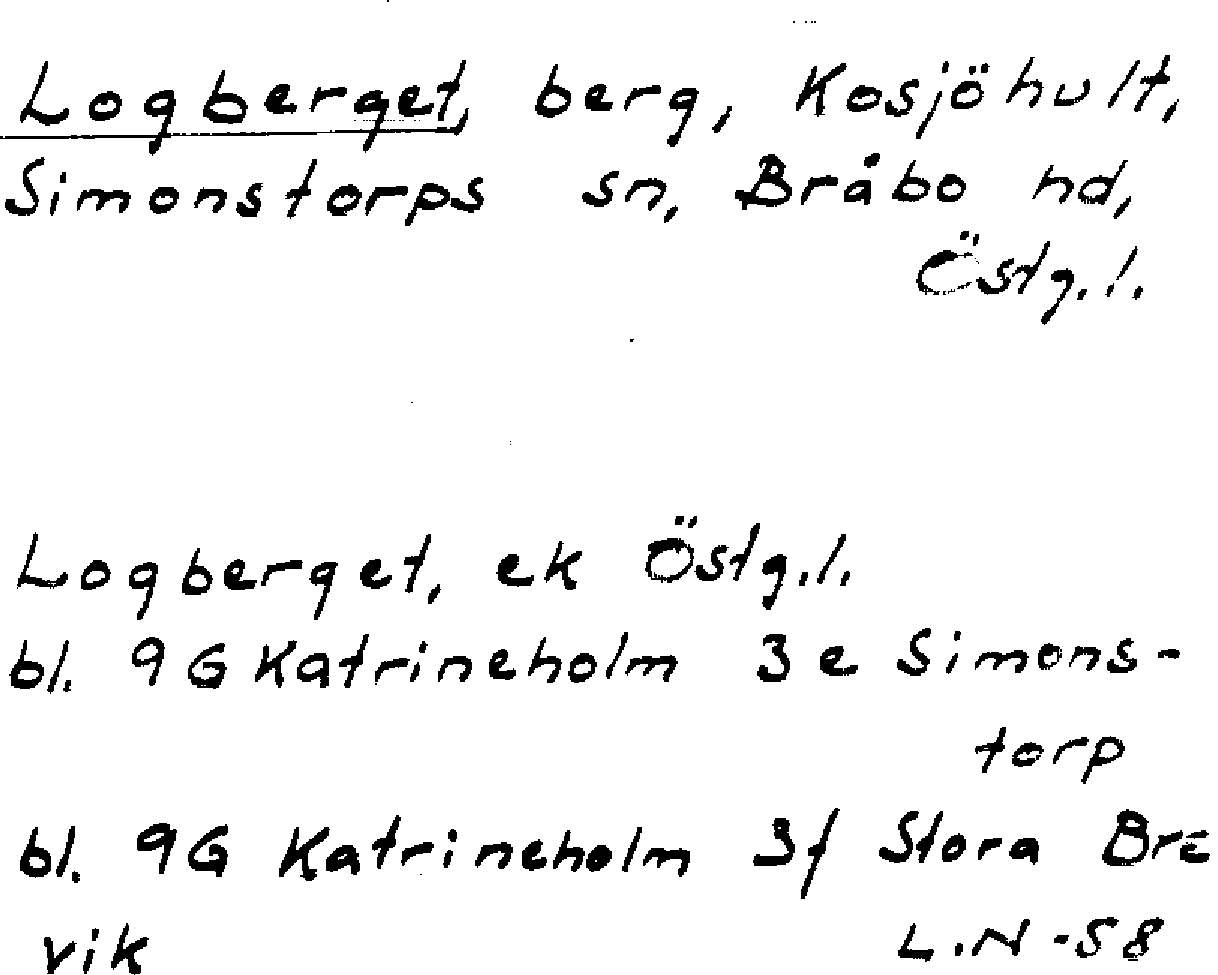 Logberget, berg, Kosjöhult,
Simonstorps sn, Bråbo hd,
Östg.l.
Logberget, ek Östg.l.
bl. 9G Katrineholm 3e Simons-
torp
bl. 9G Katrineholm 3f Stora Bre
vik L.N -58